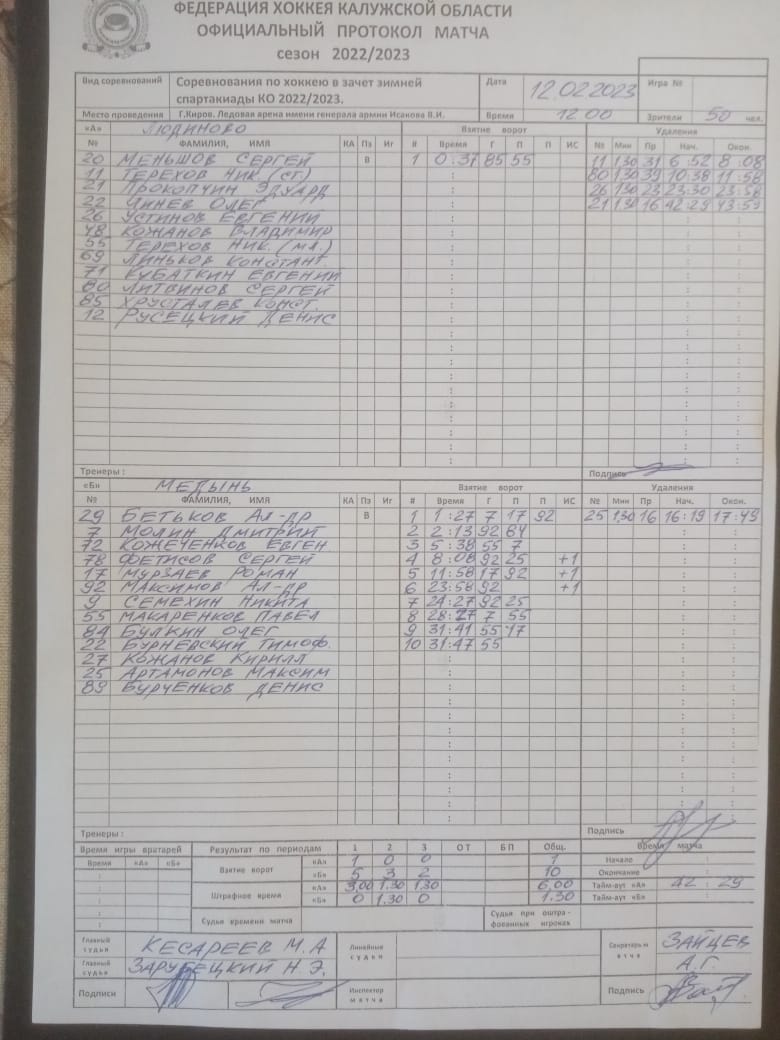 ФЕДЕРАЦИЯ ХОККЕЯ КАЛУЖСКОЙ ОБЛАСТИ
ОФИЦИАЛЬНЫЙ ПРОТОКОЛ МАТЧА
сезон 2022/2023
Вид соревнований Соревнования по хоккею в зачет зимней спартакиады КО 2022/2023. Дата 12.02.2023 Игра №
Место проведения Г.Киров. Ледовая арена имени генерала армии Исакова В.И. Время 12.00 Зрители 50 чел.
«А» ЛЮДИНОВО Взятие ворот Удаления
№ ФАМИЛИЯ, ИМЯ КА Пз Иг # Время Г П П ИС № Мин Пр Нач. Окон.
20 МЕНЬШОВ СЕРГЕЙ В 1 0:37 85 55 11 1,30 31 6:52 8:08
11 ТЕРЕХОВ НИК.(СТ.) 80 1,30 39 10:38 11:58
21 ПРОКОПЧИН ЭДУАРД 26 1,30 23 23:30 23:58
22 ЛИНЕВ ОЛЕГ 21 1,30 16 42:29 43:59
26 УСТИНОВ ЕВГЕНИЙ
48 КОЖАНОВ ВЛАДИМИР
55 ТЕРЕХОВ НИК.(МЛ.)
69 ЛИНЬКОВ КОНСТАНТ.
71 КУБАТКИН ЕВГЕНИЙ
80 ЛИТВИНОВ СЕРГЕЙ
85 ХРУСТАЛЕВ КОНСТ.
12 РУСЕЦКИЙ ДЕНИС
Тренеры: Подпись
«Б» МЕДЫНЬ Взятие ворот Удаления
№ ФАМИЛИЯ, ИМЯ КА Пз Иг # Время Г П П ИС № Мин Пр Нач. Окон.
29 БЕТЬКОВ АЛ-ДР В 1 1:27 7 17 92 25 1,30 16 16:19 17:49
7 МОЛИН ДМИТРИЙ 2 2:13 92 84
72 КОЖЕЧЕНКОВ ЕВГЕН 3 5:38 55 7
78 ФЕТИСОВ СЕРГЕЙ 4 8:08 92 25 +1
17 МУРЗАЕВ РОМАН 5 11:58 17 92 +1
92 МАКСИМОВ АЛ-ДР 6 23:58 92 +1
9 СЕМЕХИН НИКИТА 7 24:27 92 25
55 МАКАРЕНКОВ ПАВЕЛ 8 28:27 7 55
84 БУЛКИН ОЛЕГ 9 31:41 55 17
22 БУРНЕВСКИЙ ТИМОФ. 10 31:47 55
27 КОЖАНОВ КИРИЛЛ
25 АРТАМОНОВ МАКСИМ
89 БУРЧЕНКОВ ДЕНИС
Тренеры: Подпись
Время игры вратарей Результат по периодам 1 2 3 ОТ БП Общ. Время матча
Время «А» «Б» Взятие ворот «А» 1 0 0 1 Начало
«Б» 5 3 2 10 Окончание
Штрафное время «А» 3,00 1.30 1.30 6,00 Тайм-аут «А» 42:29
«Б» 0 1.30 0 1.30 Тайм-аут «Б»
Судьи времени матча Судьи при оштрафованных игроках
Главный судья КЕСАРЕЕВ М.А Линейные судьи Секретарь матча ЗАЙЦЕВ
Главный судья ЗАРУБЕЦКИЙ Н.Э. А.Г.
Подписи Инспектор матча Подпись